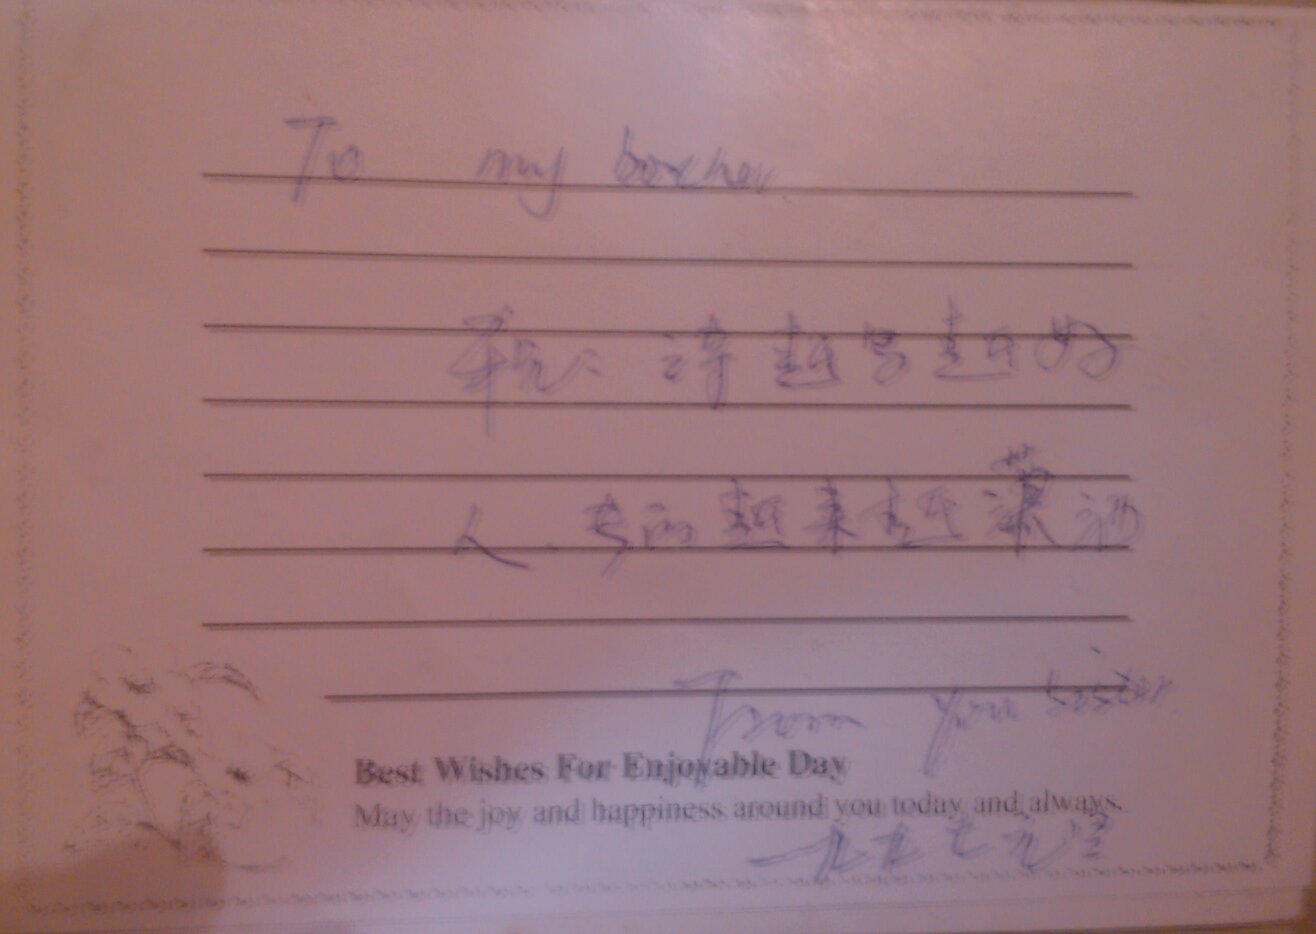 To my borher
祝：诗越写越好
人、长的越来越潇洒
From your sister
Best Wishes For Enjoyable Day
May the joy and happiness around you today and always.
一九九七元宵